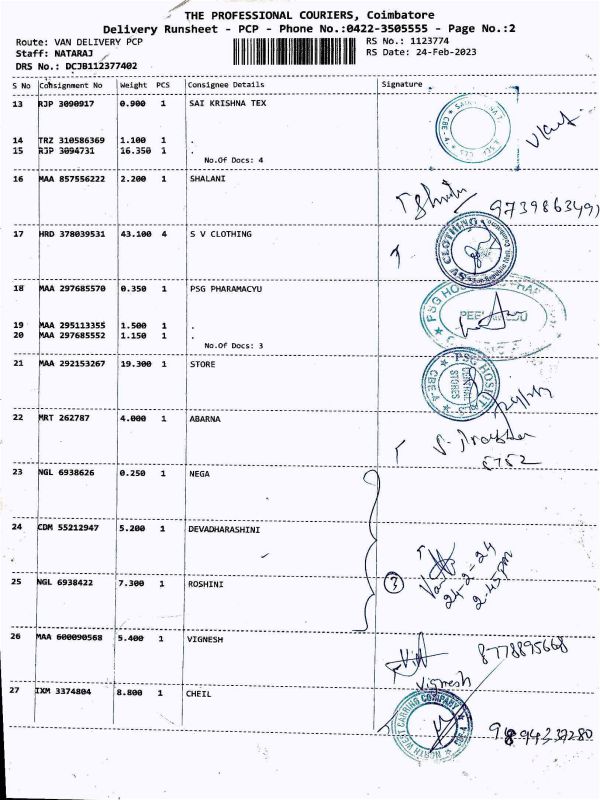 THE PROFESSIONAL COURIERS, Coimbatore
Delivery Runsheet - PCP - Phone No.:0422-3505555 - Page No.:2
Route: VAN DELIVERY PCP RS No.: 1123774
Staff: NATARAJ RS Date: 24-Feb-2023
DRS No.: DCJB112377402
S No Consignment No Weight PCS Consignee Details Signature
13 RJP 3090917 0.900 1 SAI KRISHNA TEX
14 TRZ 310586369 1.100 1 .
15 RJP 3094731 16.350 1 .
No.Of Docs: 4
16 MAA 857556222 2.200 1 SHALANI
17 HRD 378039531 43.100 4 S V CLOTHING
CLOTHING
18 MAA 297685570 0.350 1 PSG PHARAMACYU
PSG
19 MAA 295113355 1.500 1 .
20 MAA 297685552 1.150 1 .
No.Of Docs: 3
21 MAA 292153267 19.300 1 STORE
PSG HOSPITALS
STORES
CBE-4
22 MRT 262787 4.000 1 ABARNA
23 NGL 6938626 0.250 1 NEGA
24 CDM 55212947 5.200 1 DEVADHARASHINI
24-2-24
2-45 pm
25 NGL 6938422 7.300 1 ROSHINI
3
26 MAA 600090568 5.400 1 VIGNESH
8778895668
Vignesh
27 IXM 3374804 8.800 1 CHEIL
NORTH WEST CARRING COMPANY